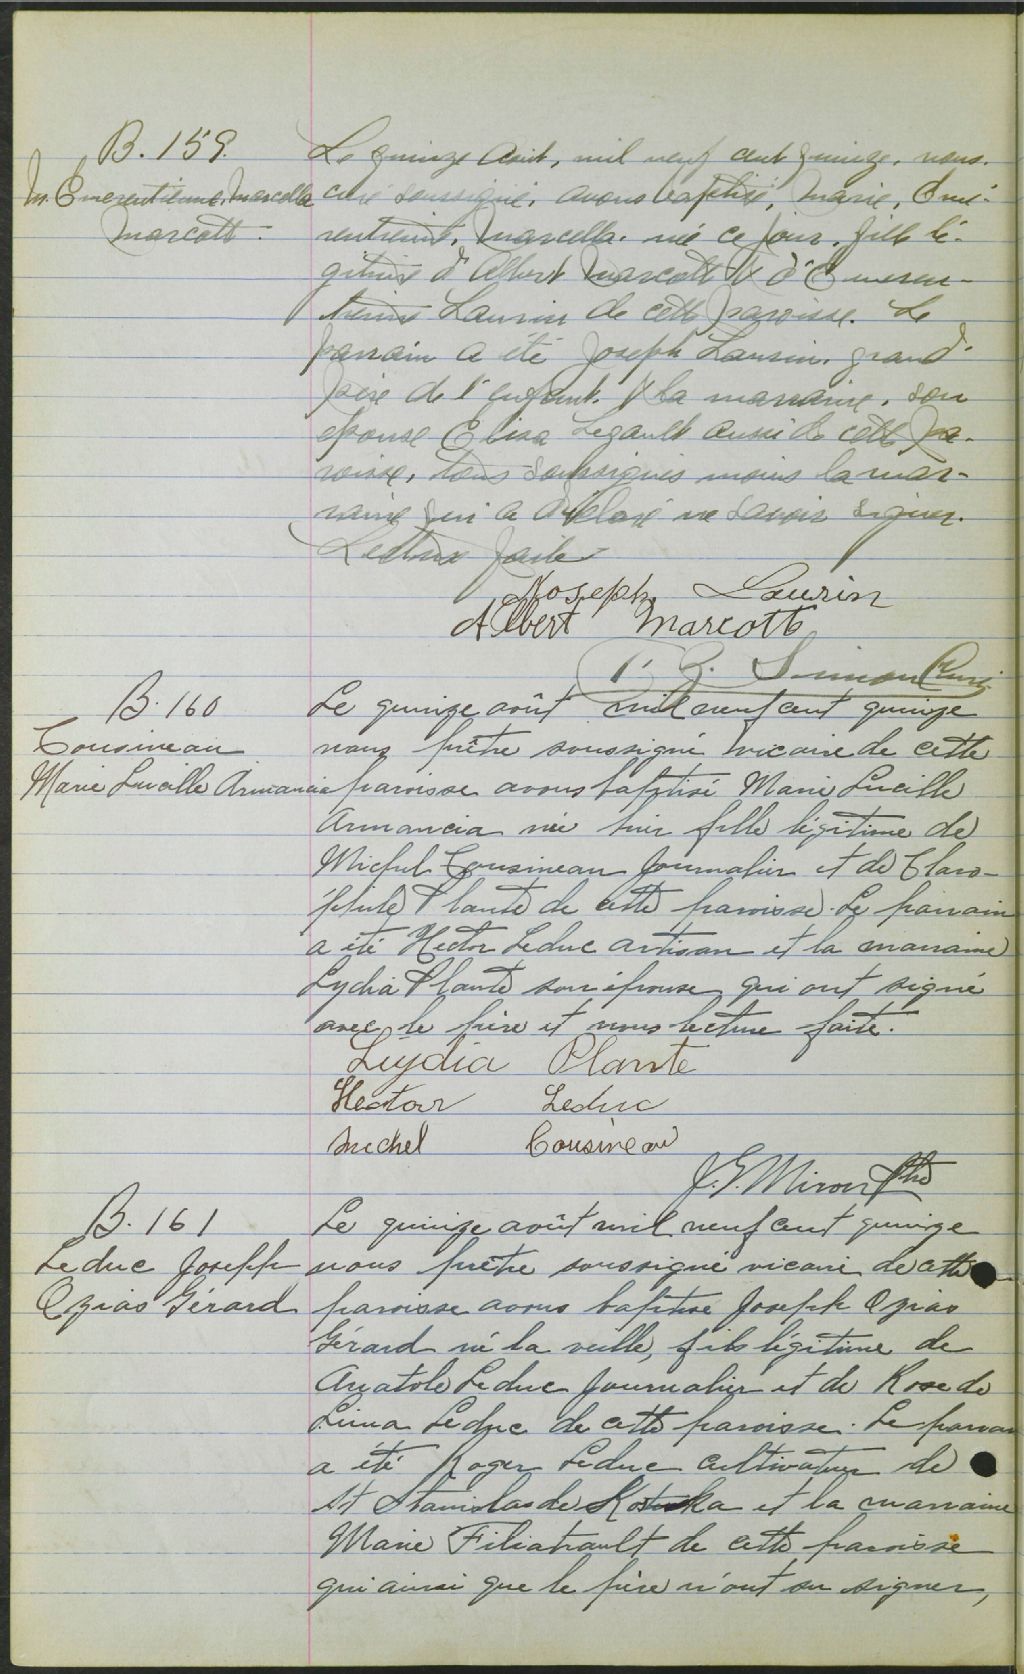 B. 159.
M. Emerentienne, Marcella
Marcott.
Le quinze Août, mil neuf cent quinze, nous.
curé soussigné, avons baptisé, Marie, Eme-
rentienne, Marcella. née ce jour. fille lé-
gitime d'Albert Marcott & d'Emeren-
tienne Laurin de cette paroisse. Le
parrain a été Joseph Laurin. grand-
père de l'enfant. & la marraine, son
épouse Elisa Legault aussi de cette pa-
roisse, tous soussignés moins la mar-
raine qui a déclaré ne savoir signer.
Lecture faite
Joseph Laurin
Albert Marcotte
Simon Curé
B. 160
Cousineau
Marie Lucille Armancia
Le quinze août mil neuf cent quinze
nous prêtre soussigné vicaire de cette
paroisse avons baptisé Marie Lucille
Armancia née hier fille légitime de
Michel Cousineau journalier et de Claro-
phile Plante de cette paroisse. Le parrain
a été Hector Leduc artisan et la marraine
Lydia Plante son épouse qui ont signé
avec le père et nous lecture faite.
Lydia Plante
Hector Leduc
Michel Cousineau
Miron Ptre
B. 161
Leduc Joseph
Ozias Gérard
Le quinze août mil neuf cent quinze
nous prêtre soussigné vicaire de cette
paroisse avons baptisé Joseph Ozias
Gérard né la veille, fils légitime de
Anatole Leduc journalier et de Rose de
Lima Leduc de cette paroisse. Le parrain
a été Roger Leduc cultivateur de
St Stanislas de Kostka et la marraine
Marie Filiatrault de cette paroisse
qui ainsi que le père n'ont su signer,